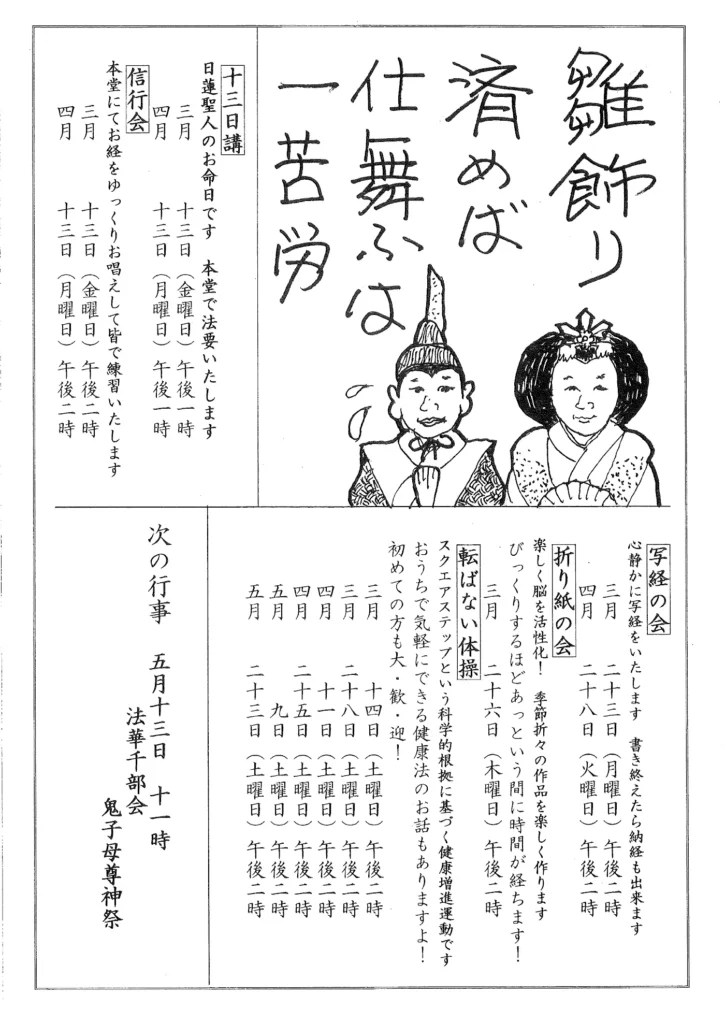 雛飾り
済めば
仕舞ふは
一苦労
十三日講
日蓮聖人のお命日です　本堂で法要いたします
三月　十三日（金曜日）午後一時
四月　十三日（月曜日）午後一時
信行会
本堂にてお経をゆっくりお唱えして皆で練習いたします
三月　十三日（金曜日）午後二時
四月　十三日（月曜日）午後二時
写経の会
心静かに写経をいたします　書き終えたら納経も出来ます
三月　二十三日（月曜日）午後二時
四月　二十八日（火曜日）午後二時
折り紙の会
楽しく脳を活性化！　季節折々の作品を楽しく作ります
びっくりするほどあっという間に時間が経ちます！
三月　二十六日（木曜日）午後二時
転ばない体操
スクエアステップという科学的根拠に基づく健康増進運動です
おうちで気軽にできる健康法のお話もありますよ！
初めての方も大・歓・迎！
三月　十四日（土曜日）午後二時
三月　二十八日（土曜日）午後二時
四月　十一日（土曜日）午後二時
四月　二十五日（土曜日）午後二時
五月　九日（土曜日）午後二時
五月　二十三日（土曜日）午後二時
次の行事　五月十三日　十一時
法華千部会
鬼子母尊神祭